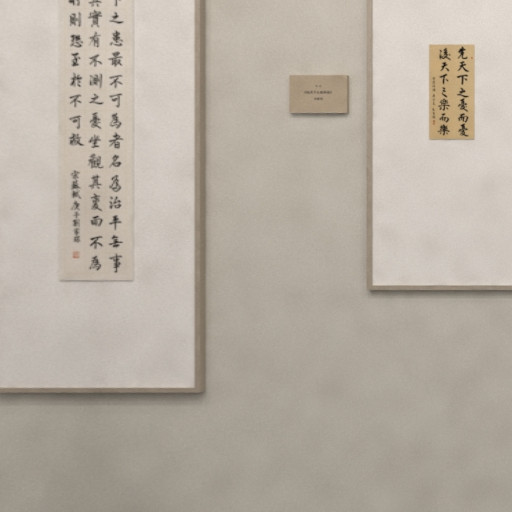 下之患最不可為者名為治平無事
其實有不測之憂坐觀其變而不為
則恐至於不可救
宋蘇軾
先天下之憂而憂
後天下之樂而樂